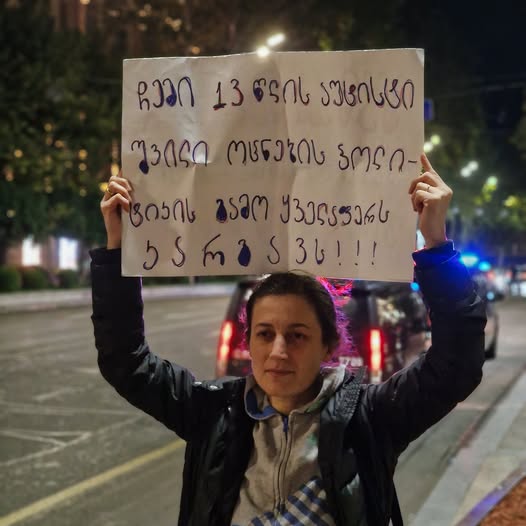 ჩემი 13 წლის აუტისტი
შვილი ოცნების პოლი-
ტიკის გამო ყველაფერს
კარგავს!!!